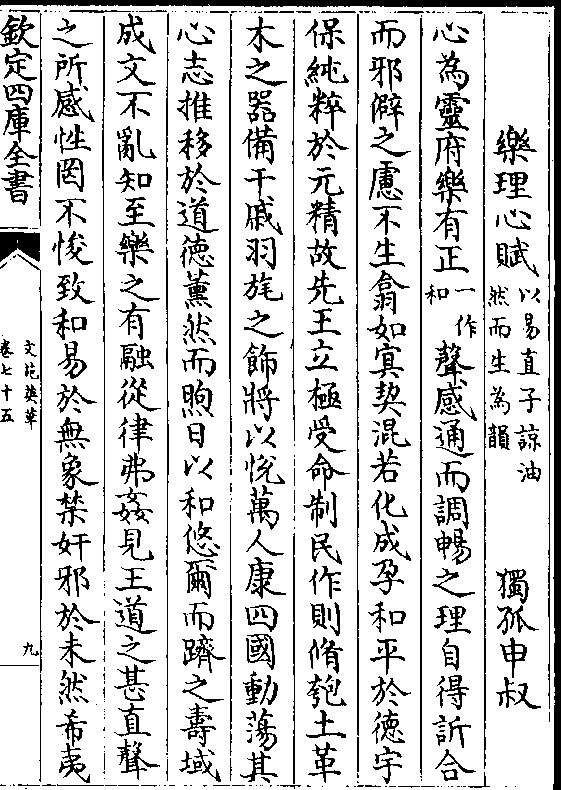 樂理心賦以易直子諒油然而生為韻 獨孤申叔
心為靈府樂有正一作和聲感通而調暢之理自得訢合
而邪僻之慮不生翕如㝠契混若化成孕和平於德宇
保純粹於元精故先王立極受命制民作則脩匏土革
木之器備干戚羽旄之飾將以悅萬人康四國動蕩其
心志推移於道德薰然而煦日以和悠爾而躋之壽域
成文不亂知至樂之有融從律弗姦見王道之甚直聲
之所感性罔不悛致和易於無象禁奸邪於未然希夷
欽定四庫全書
文苑英華
卷七十五
九